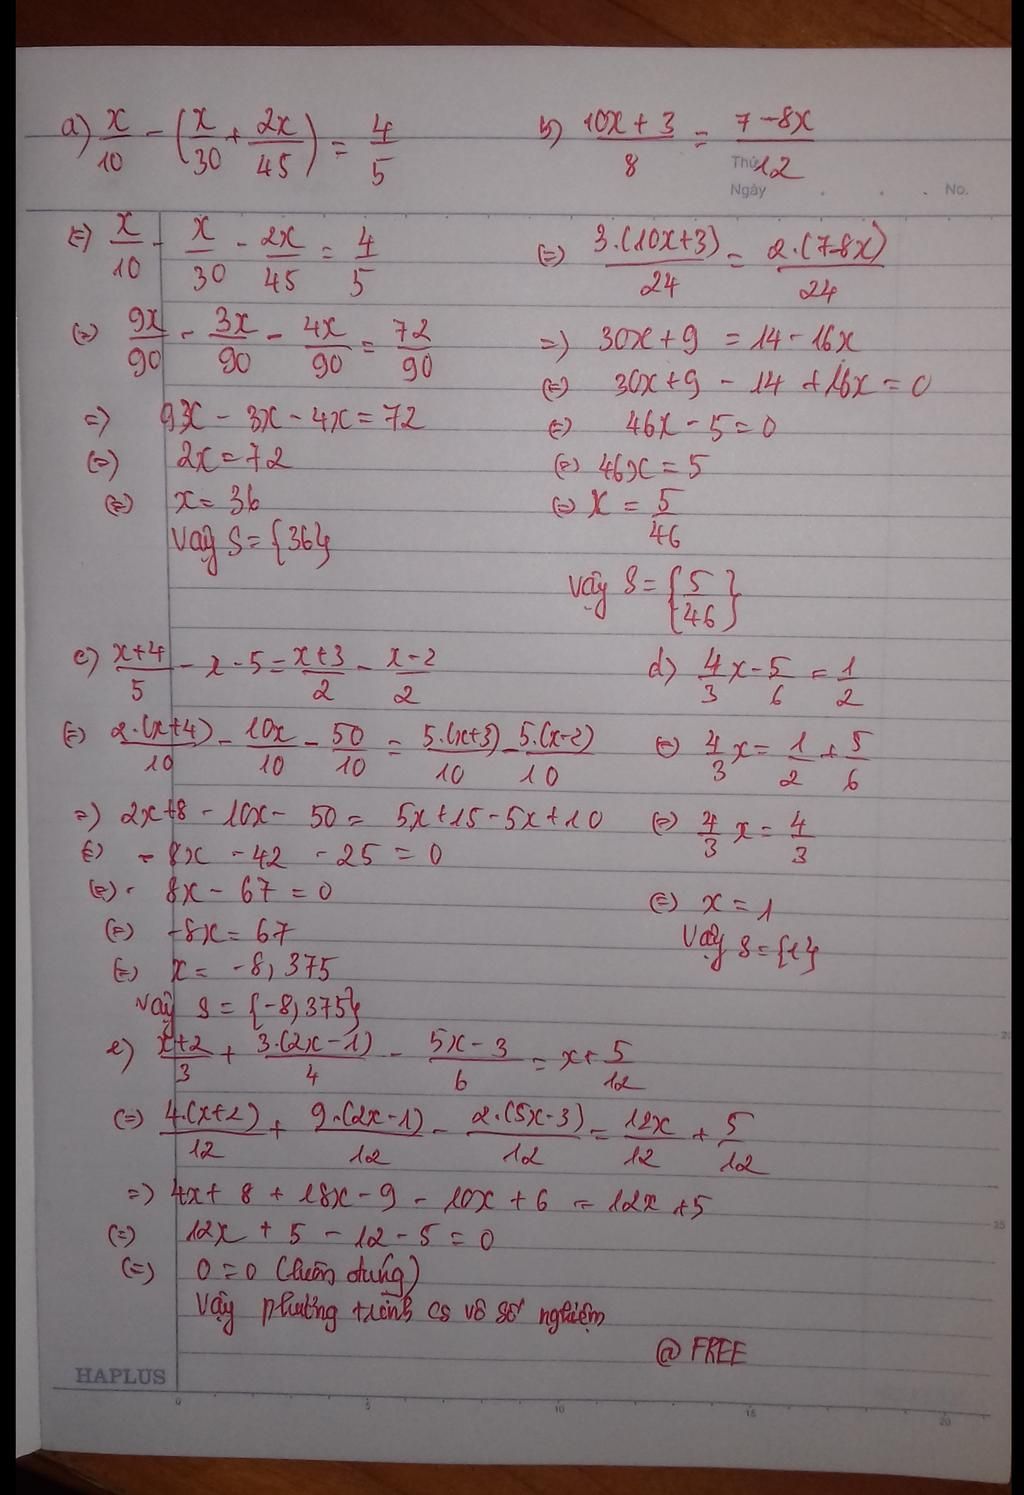 a) x/10 - (x/30 + 2x/45) = 4/5
(=) x/10 - x/30 - 2x/45 = 4/5
(=) 9x/90 - 3x/90 - 4x/90 = 72/90
=) 9x - 3x - 4x = 72
(=) 2x = 72
(=) x = 36
Vậy S = {36}
b) 10x + 3/8 = 7 - 8x/12
Thứ
Ngày . . . No.
(=) 3.(10x+3)/24 = 2.(7-8x)/24
=) 30x + 9 = 14 - 16x
(=) 30x + 9 - 14 + 16x = 0
(=) 46x - 5 = 0
(=) 46x = 5
(=) x = 5/46
Vậy S = {5/46}
c) x+4/5 - x - 5 = x+3/2 - x-2/2
(=) 2.(x+4)/10 - 10x/10 - 50/10 = 5.(x+3)/10 - 5.(x-2)/10
=) 2x+8 - 10x - 50 = 5x+15 - 5x + 10
(=) - 8x - 42 - 25 = 0
(=) - 8x - 67 = 0
(=) -8x = 67
(=) x = -8,375
Vậy S = {-8,375}
d) 4/3 x - 5/6 = 1/2
(=) 4/3 x = 1/2 + 5/6
(=) 4/3 x = 4/3
(=) x = 1
Vậy S = {1}
e) x+2/3 + 3.(2x-1)/4 - 5x-3/6 = x + 5/12
(=) 4.(x+2)/12 + 9.(2x-1)/12 - 2.(5x-3)/12 = 12x/12 + 5/12
=) 4x + 8 + 18x - 9 - 10x + 6 = 12x + 5
(=) 12x + 5 - 12 - 5 = 0
(=) 0 = 0 (luôn đúng)
Vậy phương trình có vô số nghiệm
@ FREE
HAPLUS
0 5 10 15 20
25